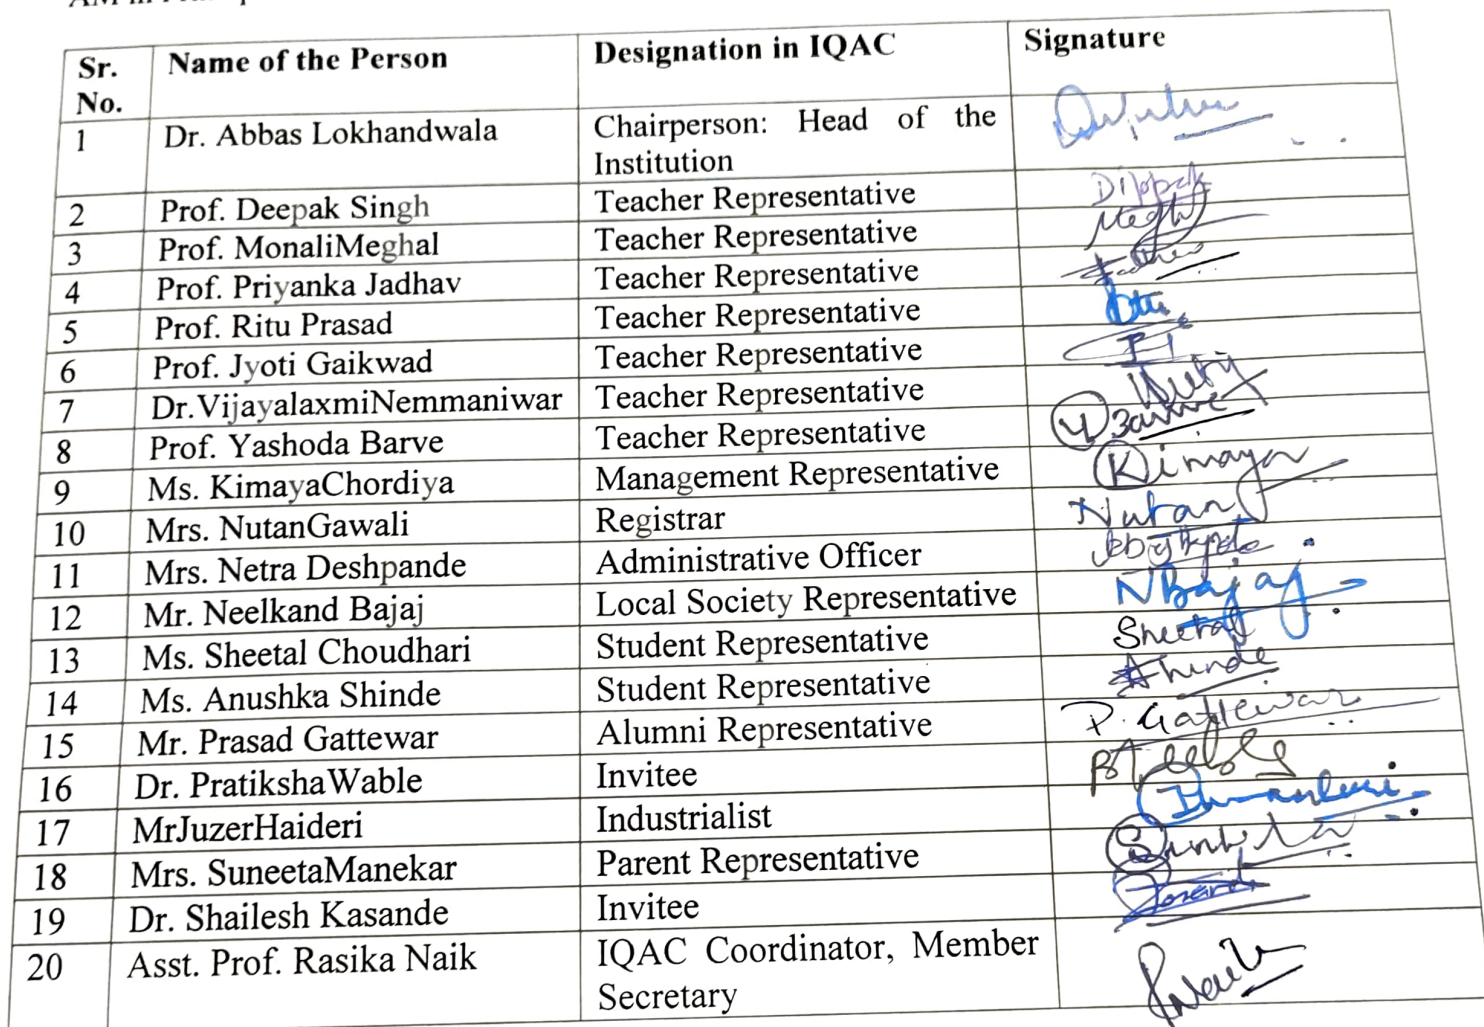 Sr. No. Name of the Person Designation in IQAC Signature
1 Dr. Abbas Lokhandwala Chairperson: Head of the Institution
2 Prof. Deepak Singh Teacher Representative
3 Prof. MonaliMeghal Teacher Representative
4 Prof. Priyanka Jadhav Teacher Representative
5 Prof. Ritu Prasad Teacher Representative
6 Prof. Jyoti Gaikwad Teacher Representative
7 Dr.VijayalaxmiNemmaniwar Teacher Representative
8 Prof. Yashoda Barve Teacher Representative
9 Ms. KimayaChordiya Management Representative Kimaya
10 Mrs. NutanGawali Registrar Nutan
11 Mrs. Netra Deshpande Administrative Officer
12 Mr. Neelkand Bajaj Local Society Representative NBajaj
13 Ms. Sheetal Choudhari Student Representative Sheetal
14 Ms. Anushka Shinde Student Representative AShinde
15 Mr. Prasad Gattewar Alumni Representative P. Gattewar
16 Dr. PratikshaWable Invitee
17 MrJuzerHaideri Industrialist
18 Mrs. SuneetaManekar Parent Representative
19 Dr. Shailesh Kasande Invitee
20 Asst. Prof. Rasika Naik IQAC Coordinator, Member Secretary